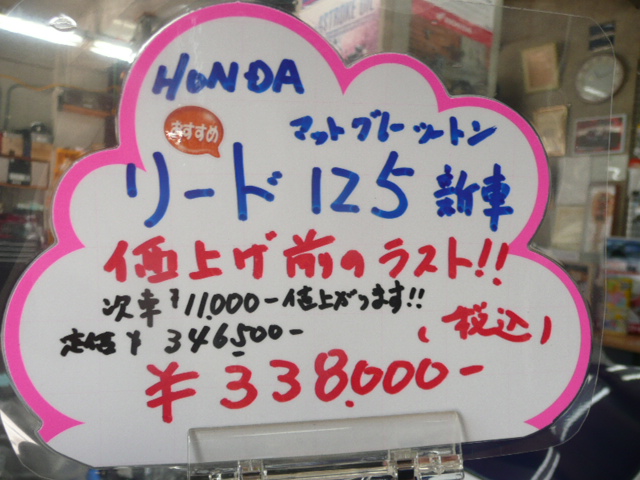 HONDA
おすすめ
マットグレーツートン
リード125 新車
価上げ前のラスト!!
次車¥11,000-値上がります!!
定価¥346,500-
(税込)
¥338,000-